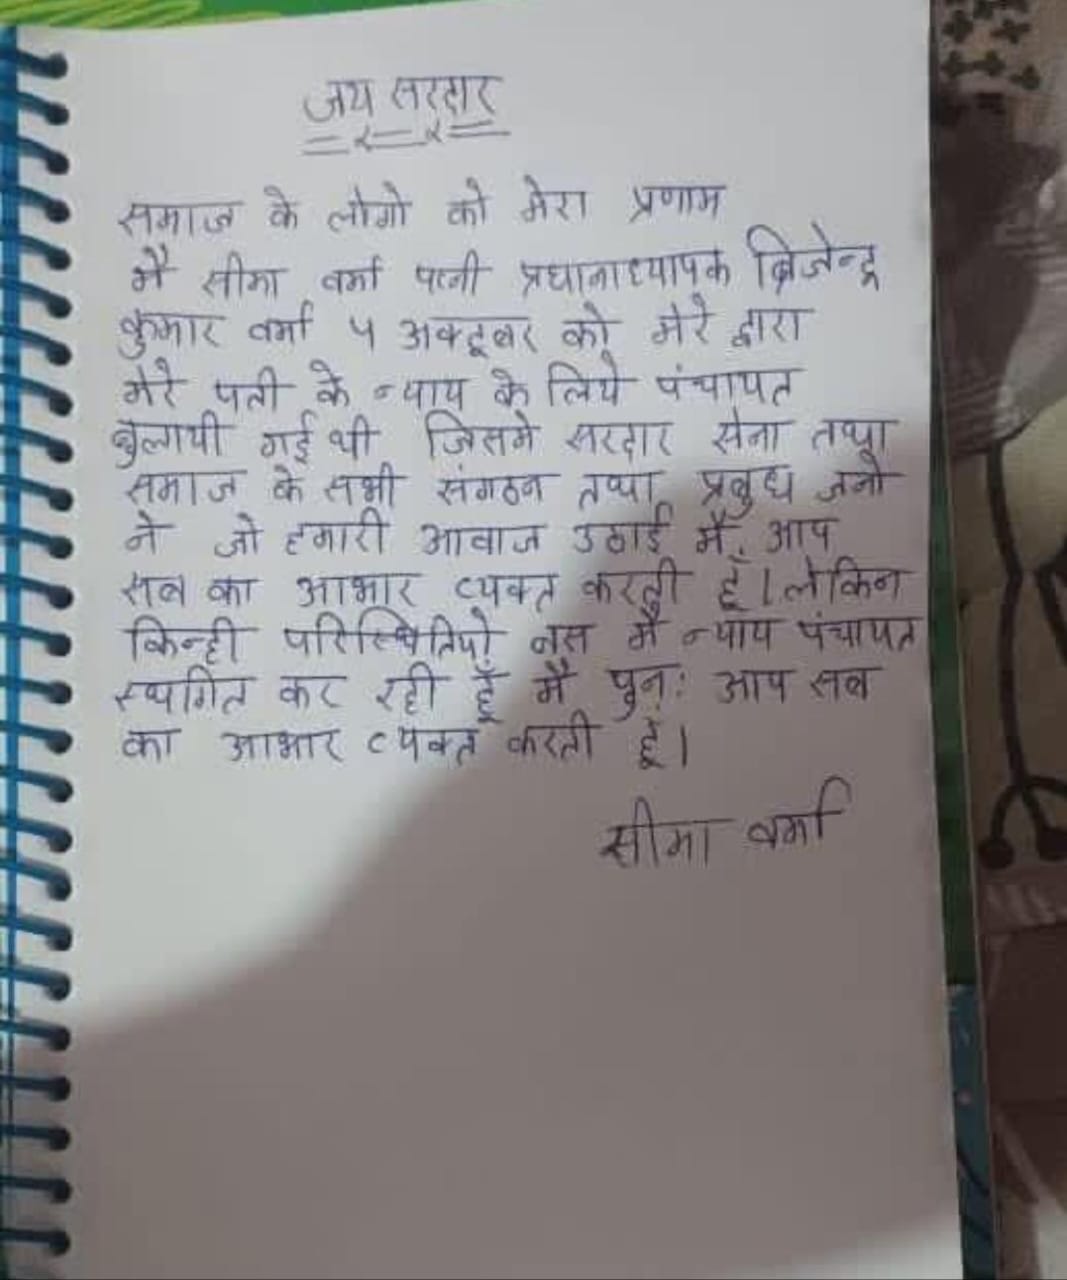 जय सरदार
समाज के लोगो को मेरा प्रणाम
मैं सीमा वर्मा पत्नी प्रधानाध्यापक ब्रिजेन्द्र
कुमार वर्मा 5 अक्टूबर को मेरे द्वारा
मेरे पती के न्याय के लिये पंचायत
बुलायी गई थी जिसमे सरदार सेना तथा
समाज के सभी संगठन तथा प्रबुध जनो
ने जो हमारी आवाज उठाई मैं आप
सब का आभार व्यक्त करती हूँ। लेकिन
किन्ही परिस्थितियो बस मैं न्याय पंचायत
स्थगित कर रही हूँ मैं पुनः आप सब
का आभार व्यक्त करती हूँ।
सीमा वर्मा